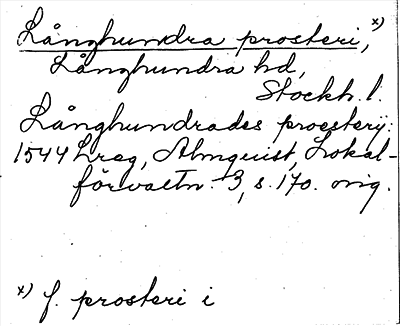 Långhundra prosteri, x)
Långhundra hd,
Stockh. l.
Långhundrades proestery:
1544 Lreg, Almquist, Lokal-
förvaltn. 3, s. 170. orig.
x) f. prosteri i